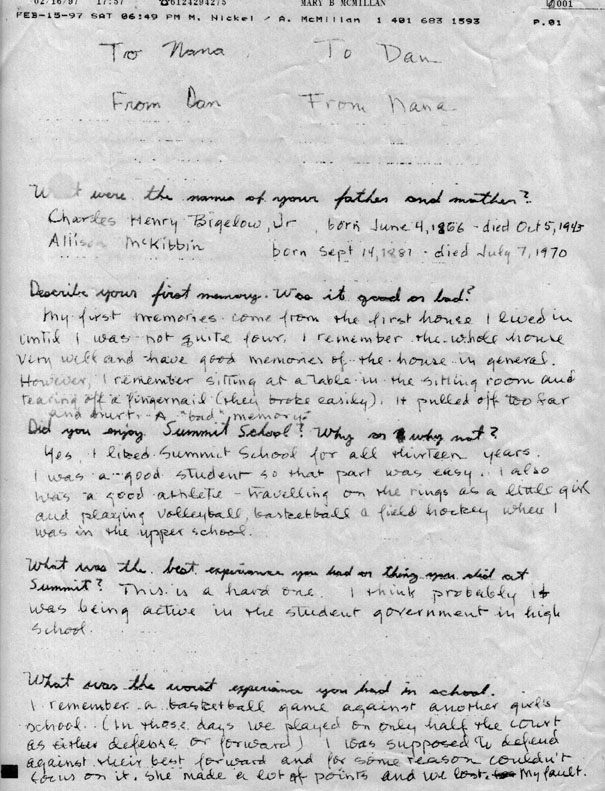 02/16/97 17:57 ☎6124294275 MARY B MCMILLAN 001
FEB-15-97 SAT 06:49 PM M. Nickel / A. McMillan 1 401 683 1593 P.01
To Nana To Dan
From Dan From Nana
What were the names of your father and mother?
Charles Henry Bigelow, Jr, born June 4, 1866 - died Oct 5, 1945
Allison McKibbin born Sept 14, 1881 - died July 7, 1970
Describe your first memory. Was it good or bad?
My first memories come from the first house I lived in
until I was not quite four. I remember the whole house
very well and have good memories of the house in general.
However, I remember sitting at a table in the sitting room and
tearing off a fingernail (their broke easily). It pulled off too far
and hurt. A "bad" memory.
Did you enjoy Summit School? Why or why not?
Yes, I liked Summit School for all thirteen years.
I was a good student so that part was easy. I also
was a good athlete - travelling on the rings as a little girl
and playing volleyball, basketball & field hockey when I
was in the upper school.
What was the best experiance you had or thing you did at
Summit? This is a hard one. I think probably it
was being active in the student government in high
school.
What was the worst experiance you had in school.
I remember a basketball game against another girl's
school. (In those days we played on only half the court
as either defense or forward) I was supposed to defend
against their best forward and for some reason couldn't
focus on it. She made a lot of points and we lost. My fault.